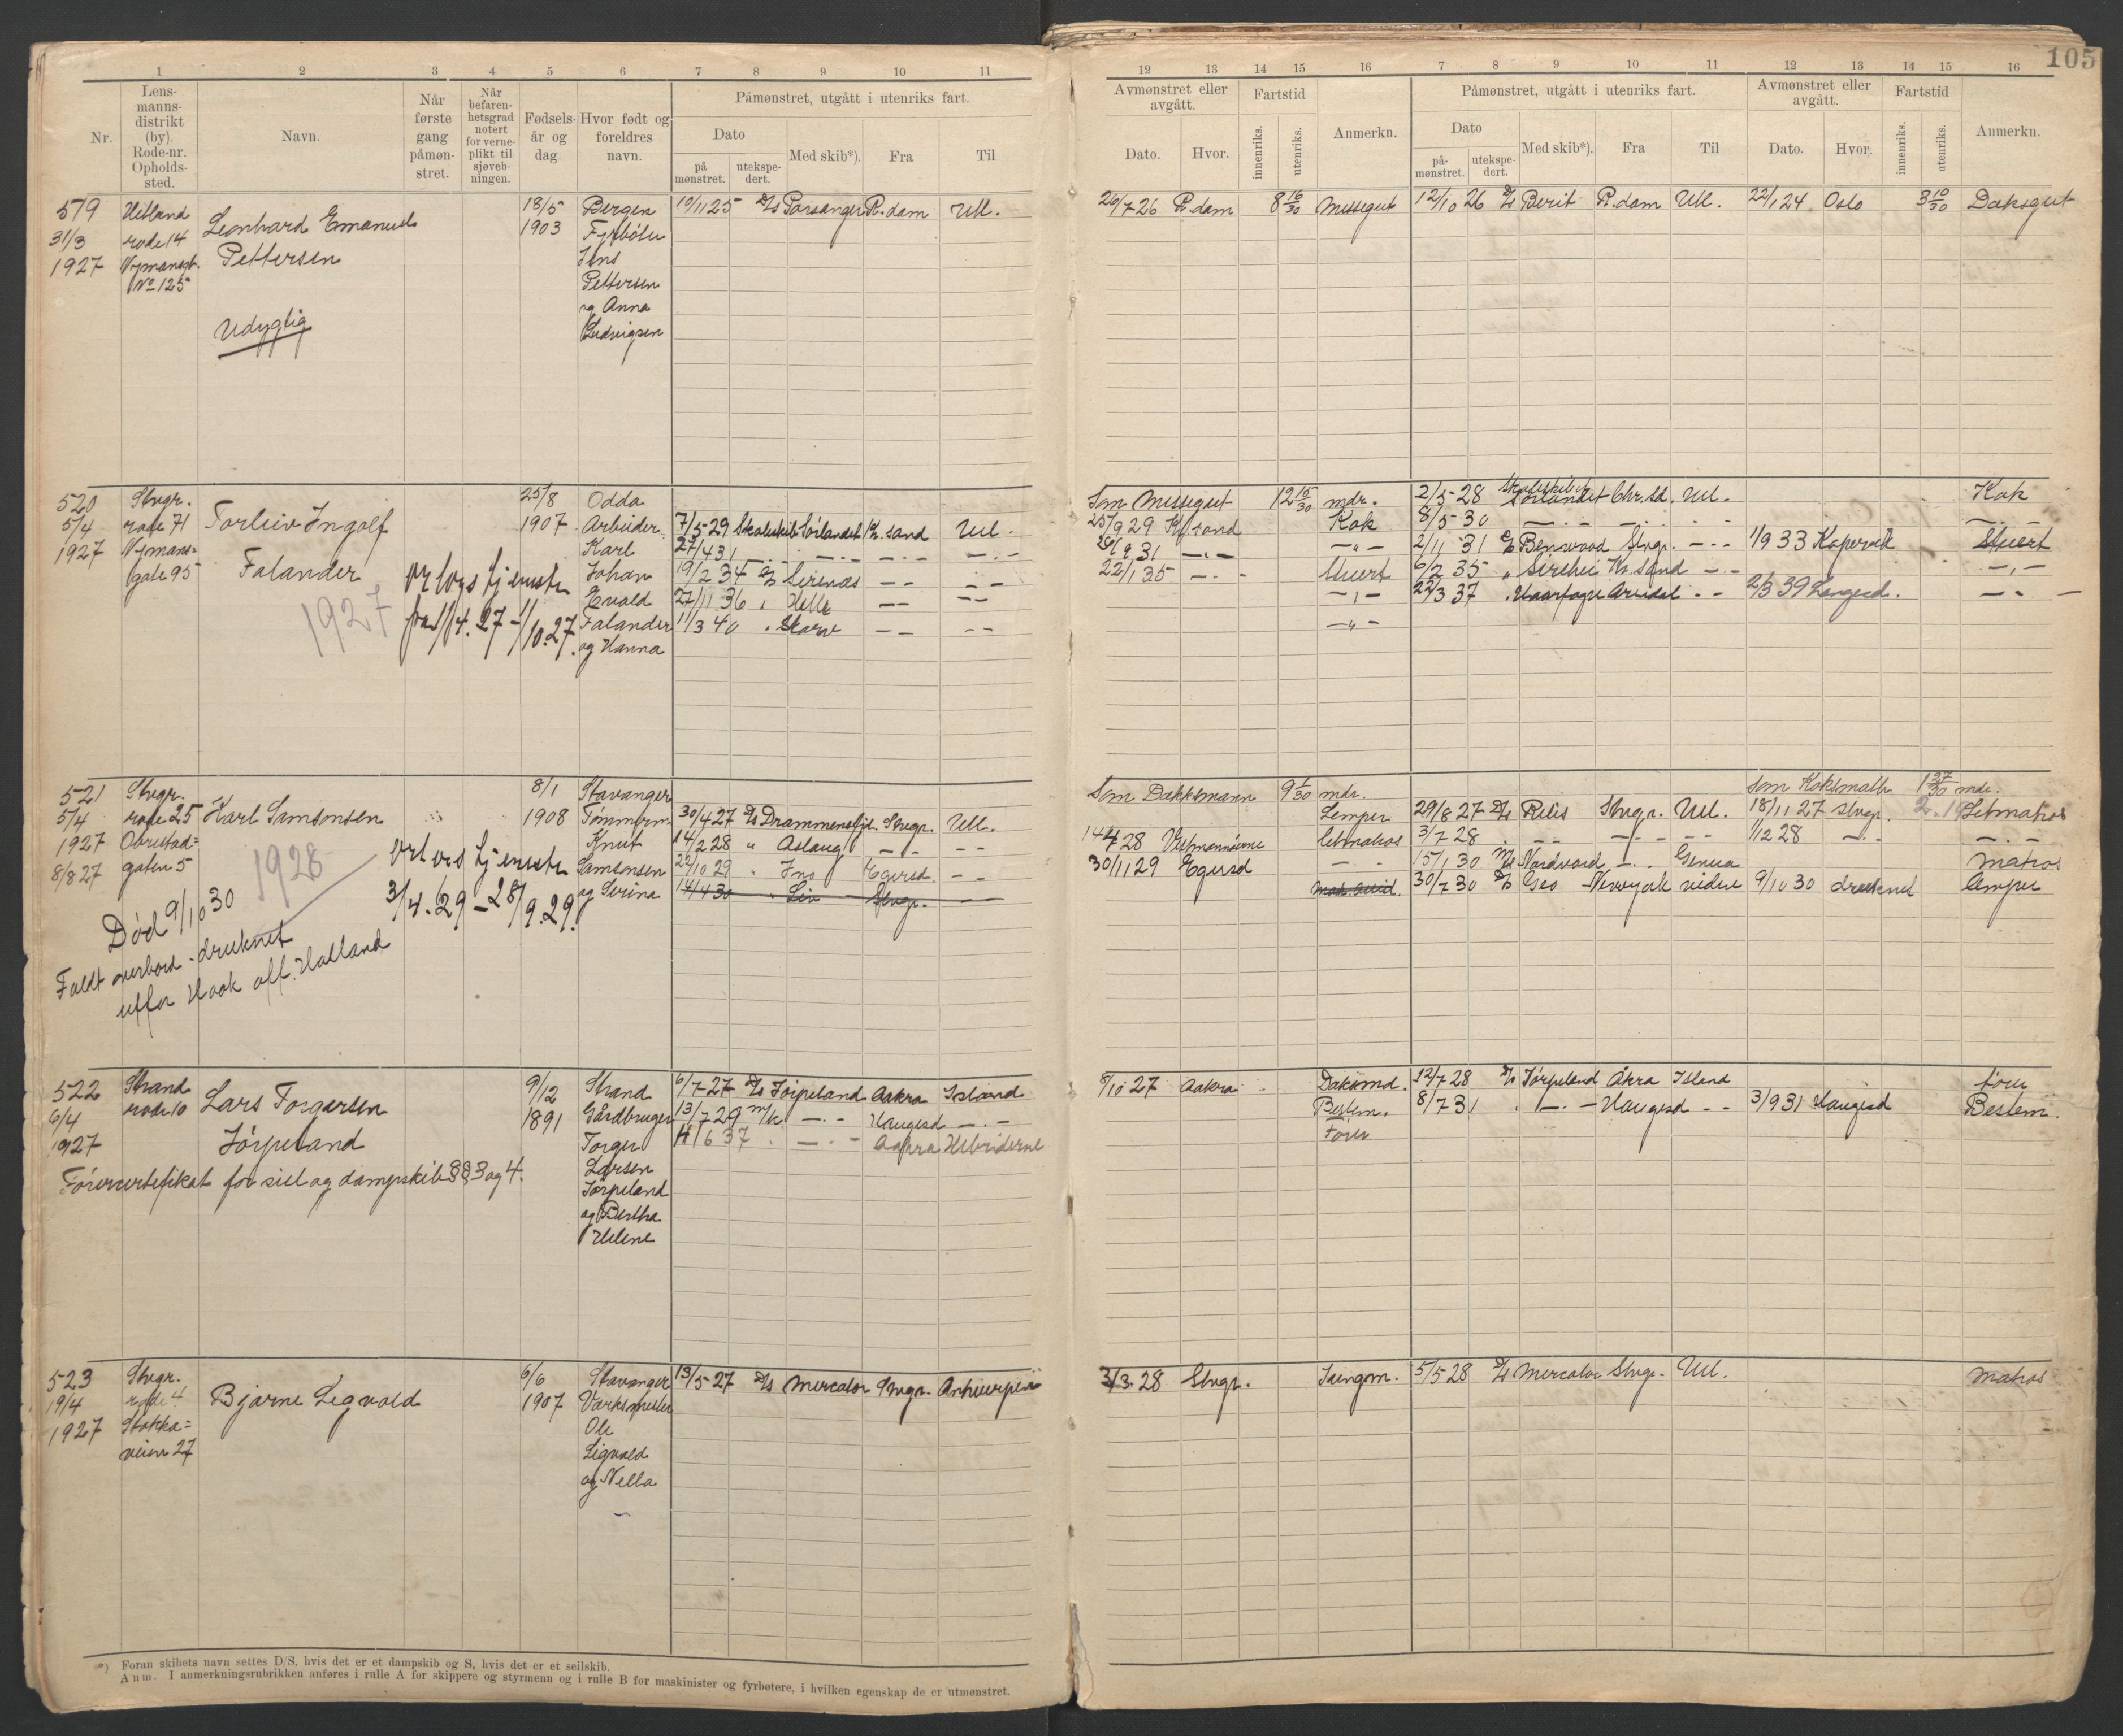 105
1 2 3 4 5 6 7 8 9 10 11
Nr.
Lens-
manns-
distrikt
(by).
Rode-nr.
Opholds-
sted.
Navn.
Når
første
gang
påmøn-
stret.
Når
befaren-
hetsgrad
notert
for verne-
plikt til
sjøveb-
ningen.
Fødsels-
år og
dag.
Hvor født og
foreldres
navn.
Påmønstret, utgått i utenriks fart.
Dato
på
mønstret.
utekspe-
dert.
Med skib*).
Fra
Til
12 13 14 15 16 7 8 9 10 11 12 13 14 15 16
Avmønstret eller
avgått.
Dato.
Hvor.
Fartstid
innenriks.
utenriks.
Anmerkn.
Påmønstret, utgått i utenriks fart.
Dato
på-
mønstret.
utekspe-
dert.
Med skib*).
Fra
Til
Avmønstret eller
avgått.
Dato.
Hvor.
Fartstid
innenriks.
utenriks.
Anmerkn.
519
31/3
1927
Hetland
rode 14
Nymansgt.
No 125
Leonhard Emanuel
Pettersen
Udygtig
18/5
1903
Bergen
Fyrbøter
Jens
Pettersen
og Anna
Ludvigsen
10/11 25 D/S Porsanger R.dam Utl.
26/7 26 R.dam 8 16/30 Messegut 12/10 26 D/S Berit R.dam Utl. 22/1 24 Oslo 3 10/30 Daksgut
520
5/4
1927
Stvgr.
rode 71
Nymans=
gate 95
Torleiv Ingolf
Falander
1927
ort vgs tjeneste
fra 1/4.27 - 1/10.27.
25/8
1907
Odda
Arbeider
Karl
Johan
Evald
Falander
og Hanna
7/5-29 Skoleskib Sørlandet K.sand Utl.
27/4 31 — . — — . — — . —
19/2 34 D/S Sirenes — — — —
27/11 36 " Helle — — — —
11/3 40 " Skarv — — — —
Som Messegut 12 15/30 mdr. 2/5-28 Skoleskibet Sørlandet Chr.sd. Utl. Kok
25/9 29 K.sand Kok 8/5-30 — . — — . — — . —
26/9 31 — " — — " — 2/11 31 D/S Benwood Stvgr. — . — 1/9 33 Kopervik Stuert
22/1 35 — . — Stuert 6/2 35 " Sirehei Kr.sand — . — — " —
— " — 22/3 37 " Haarfagre Arendal — — 2/3 39 Langesd. — " —
— " —
521
5/4
1927
8/8 27
Stvgr.
rode 25
Obrestad=
gaten 5
Karl Samsonsen
1928
ort vgs tjeneste
3/4.29 - 28/9.29.
Død 9/10 30
Faldt overbord - druknet
utfor Hook off Holland
8/1
1908
Stavanger
Tømmerm.
Knut
Samsonsen
og Serina
30/4 27 D/S Drammensfjd. Stvgr. Utl.
14/2 28 " Aslaug — — — —
22/10 29 " Ino Egersd. — —
14/4 30 " Liv Stvgr. —
Som Dækksmann 9 1/30 mdr. Som Koksmath 1 27/30 mdr.
Lemper 29/8 27 D/S Rilis Stvgr. Utl. 18/11 27 Stvgr. Letmatros
14/4 28 letmatros 3/7 28 — . — — . — — — 1/12 28 — . — — . —
30/11 29 Egersd — . — 15/1 30 M/S Nordvard — . — Genua Matros
30/7 30 D/S Geo Newyork videre 9/10 30 druknet lemper
522
6/4
1927
Strand
rode 10
Lars Torgersen
Jørpeland
Førercertifikat for seil og dampskib §§ 3 og 4.
9/12
1891
Strand
Gårdbruger
Torger
Larsen
Jørpeland
og Bertha
Helene
6/7-27 D/S Jørpeland Aakra Island
13/7 29 m/k — . — Haugesd — . —
11/6 37 " — . — Aakra Hebriderne
8/10 27 Aakra Daksmd. 12/7 28 D/S Jørpeland Åkra Island fører
Bestem. 8/7 31 " — . — Haugesd — — 3/9 31 Haugesd Bestem.
Fører
523
19/4
1927
Stvgr.
rode 4
Stokka=
veien 27
Bjarne Sigvald
6/6
1907
Stavanger
Værksmester
Ole
Sigvald
og Nella
13/5-27 D/S Mercator Stvgr. Antwerpen
3/3. 28 Stvgr. Jungm. 5/5 28 D/S Mercator Stvgr. Utl. Matros
*) Foran skibets navn settes D/S, hvis det er et dampskib og S, hvis det er et seilskib.
Anm. I anmerkningsrubrikken anføres i rulle A for skippere og styrmenn og i rulle B for maskinister og fyrbøtere, i hvilken egenskap de er utmønstret.